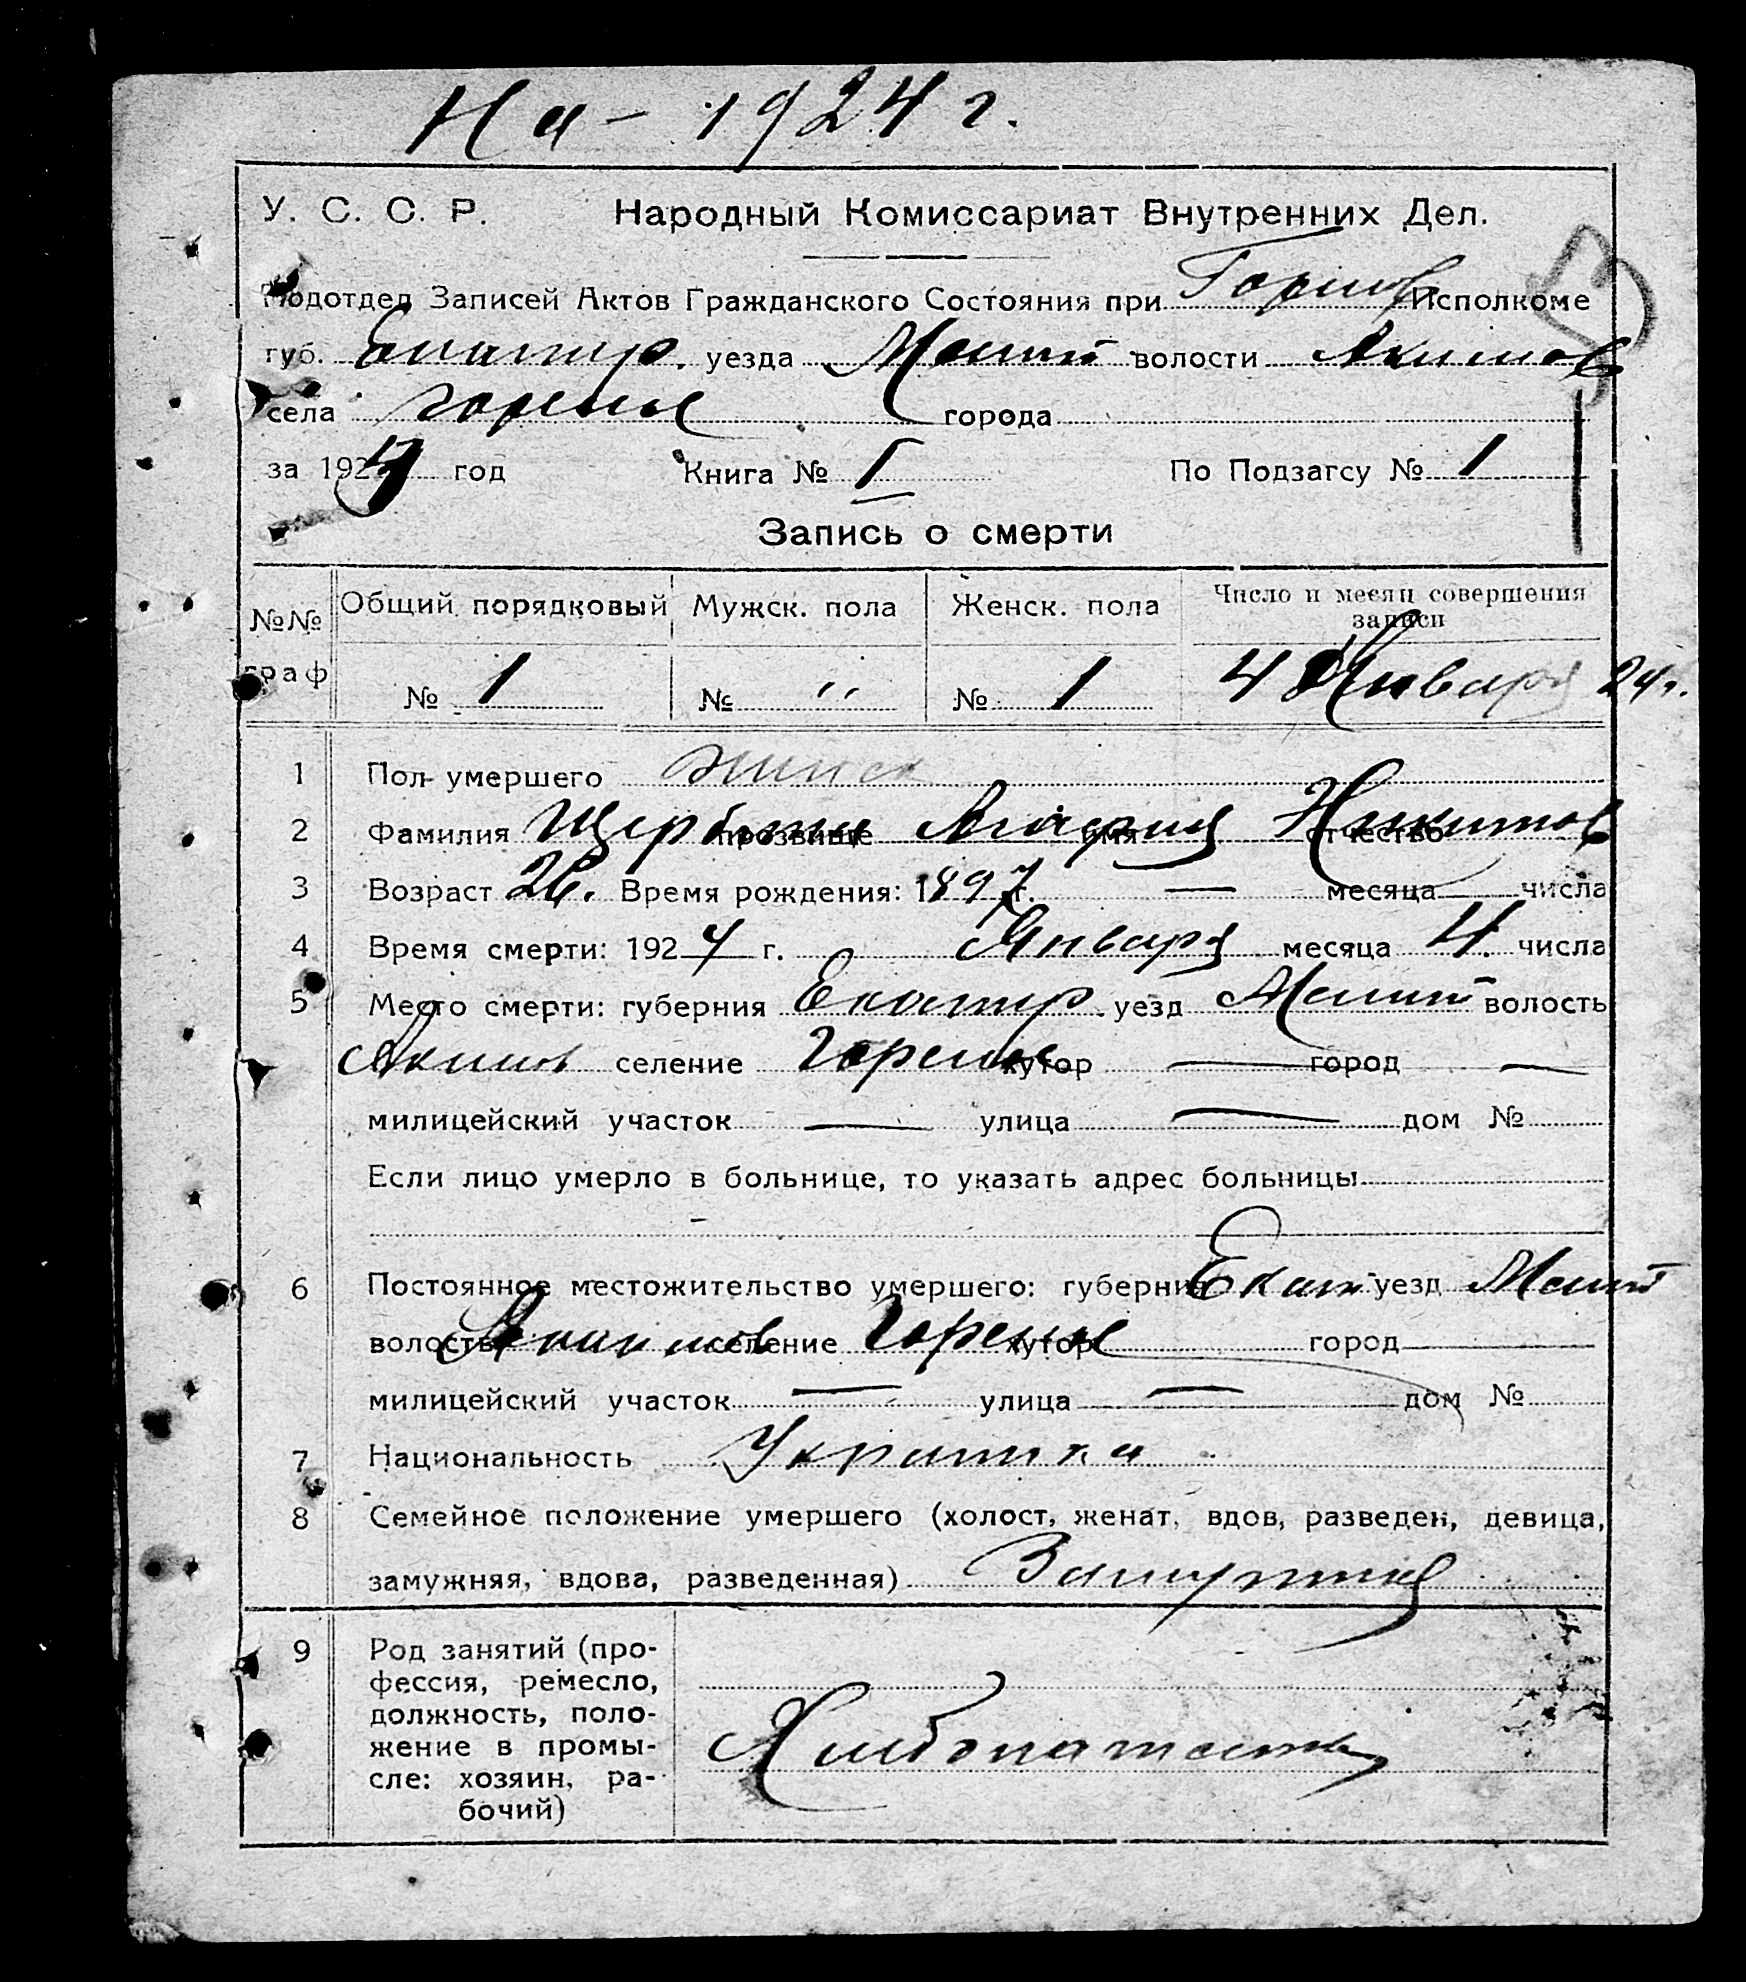 На - 1924 г.
У. С. С. Р. Народный Комиссариат Внутренних Дел.
Подотдел Записей Актов Гражданского Состояния при Исполкоме
губ. Екатер. уезда Мелит волости Акимов
села Горелое города
за 1924 год Книга № I По Подзагсу № 1
Запись о смерти
№№ Общий порядковый Мужск. пола Женск. пола Число и месяц совершения
записи
граф № 1 № " № 1 4 Января 24 г.
1 Пол умершего женск
2 Фамилия Щербина прозвище Агафия имя Никитов отчество
3 Возраст 26. Время рождения: 1897 г. — месяца — числа
4 Время смерти: 1924 г. Января месяца 4. числа
5 Место смерти: губерния Екатер. уезд Мелит волость
Акимов селение Горелое хутор — город —
милицейский участок — улица — дом №
Если лицо умерло в больнице, то указать адрес больницы
6 Постоянное местожительство умершего: губерния Екат уезд Мелит
волость Акимов селение Горелое хутор город
милицейский участок — улица — дом №
7 Национальность Украинка
8 Семейное положение умершего (холост, женат, вдов, разведен, девица,
замужняя, вдова, разведенная) Замужняя
9 Род занятий (про-
фессия, ремесло,
должность, поло-
жение в промы-
сле: хозяин, ра-
бочий) Хлебопашество